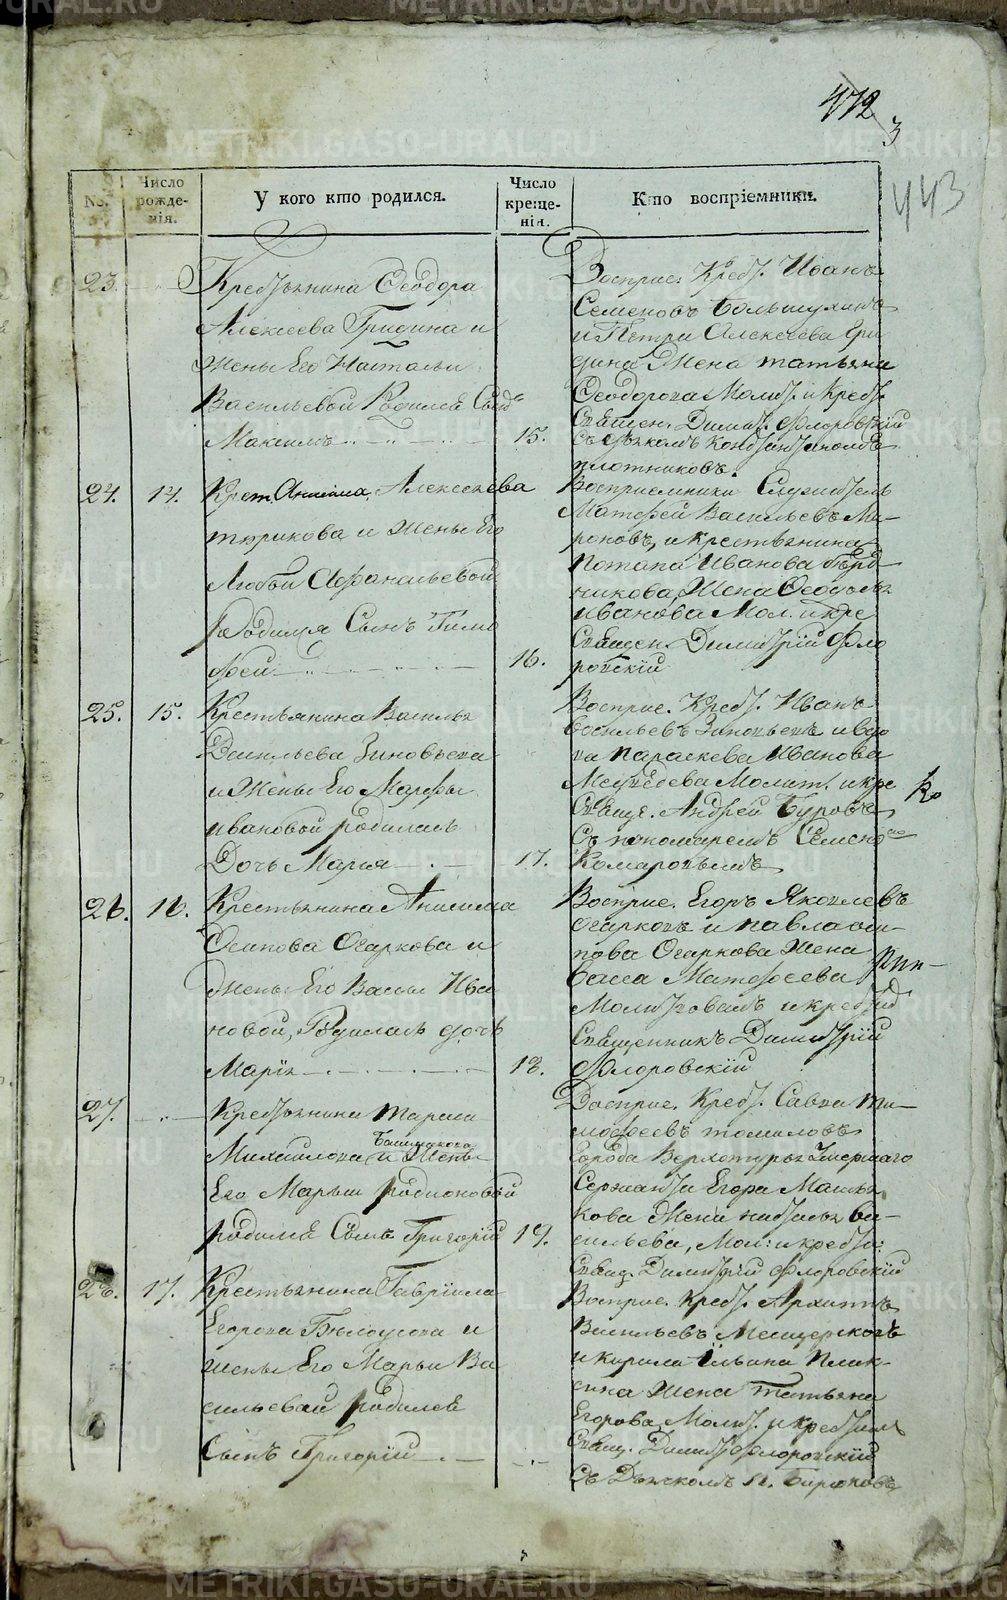 METRIKI.GASO-URAL.RU
472
3
443
No.
Число рожде-нія.
У кого кто родился.
Число креще-нія.
Кто воспріемники.
23.
Крестьянина Ѳеодора
Алексеева Гридина и
жены Его Натальи
Васильевой Родился Сынъ
Максимъ
15.
Восприе. Крест. Иванъ
Семеновъ
и Петра Алексеева Гри
дина Жена татьяна
Ѳеодорова Молит. и Крест.
Священ. Димит. Флоровскій
съ дьякомъ Констянтиномъ
плотниковъ.
24.
14.
Крет. Алексеева
тюрикова и жены Его
Любви Афанасьевой
Родился Сынъ Тимо
фей
16.
Восприемники Служитель
Матфей Васильевъ Ми-
роновъ, и крестьянина
Потапа Иванова берд
никова Жена Ѳеодосья
иванова Мол. и кре
Священ. Димитрій Фло
ровскій
25.
15.
Крестьянина Василья
Васильева Зиновьева
и Жены Его Марфы
ивановой родилась
Дочь Мария
17.
Восприе. Крест. Иванъ
васильевъ Зиновьевъ и вдо
ва параскева Иванова
Медведева Молит. и кре
Свяще. Андрей Буровъ
Съ пономаремъ Семено
Комаровымъ
Ко
26.
16.
Крестьянина Анисима
Осипова Огаркова и
жены Его Вассы Ива
новой, Родилась дочь
Марія
18.
Восприе. Егоръ Яковлевъ
Огарковъ и павла оси-
пова Огаркова Жена
васса Матфеева
Молитвовалъ и крестид
Священникъ Димитрій
Флоровскій
27.
Крестьянина тараса
Михайлова Башмакова и Жены
Его Марьи родионовой
родился Сынъ Григорій
19.
Восприе. Крест. Савва ти-
мофеевъ томиловъ
города Верхотурья Умершаго
Сержанта Егора Маль
кова Жена наталья ва-
сильева, Мол: и крести:
Свящ. Димитрій Флоровскій
28.
17.
Крестьянина Гавріила
Егорова Белоусова и
жены Его Марьи Ва
сильевой родился
Сынъ Григорій
Восприе. Крест. Архиппъ
Васильевъ Мещерсковъ
и кирила ильина Плак-
сина Жена Татьяна
Егорова, Молит. и крестилъ
Свящ. Димит. Флоровскій
Съ Дьячкомъ П. Бирюковъ